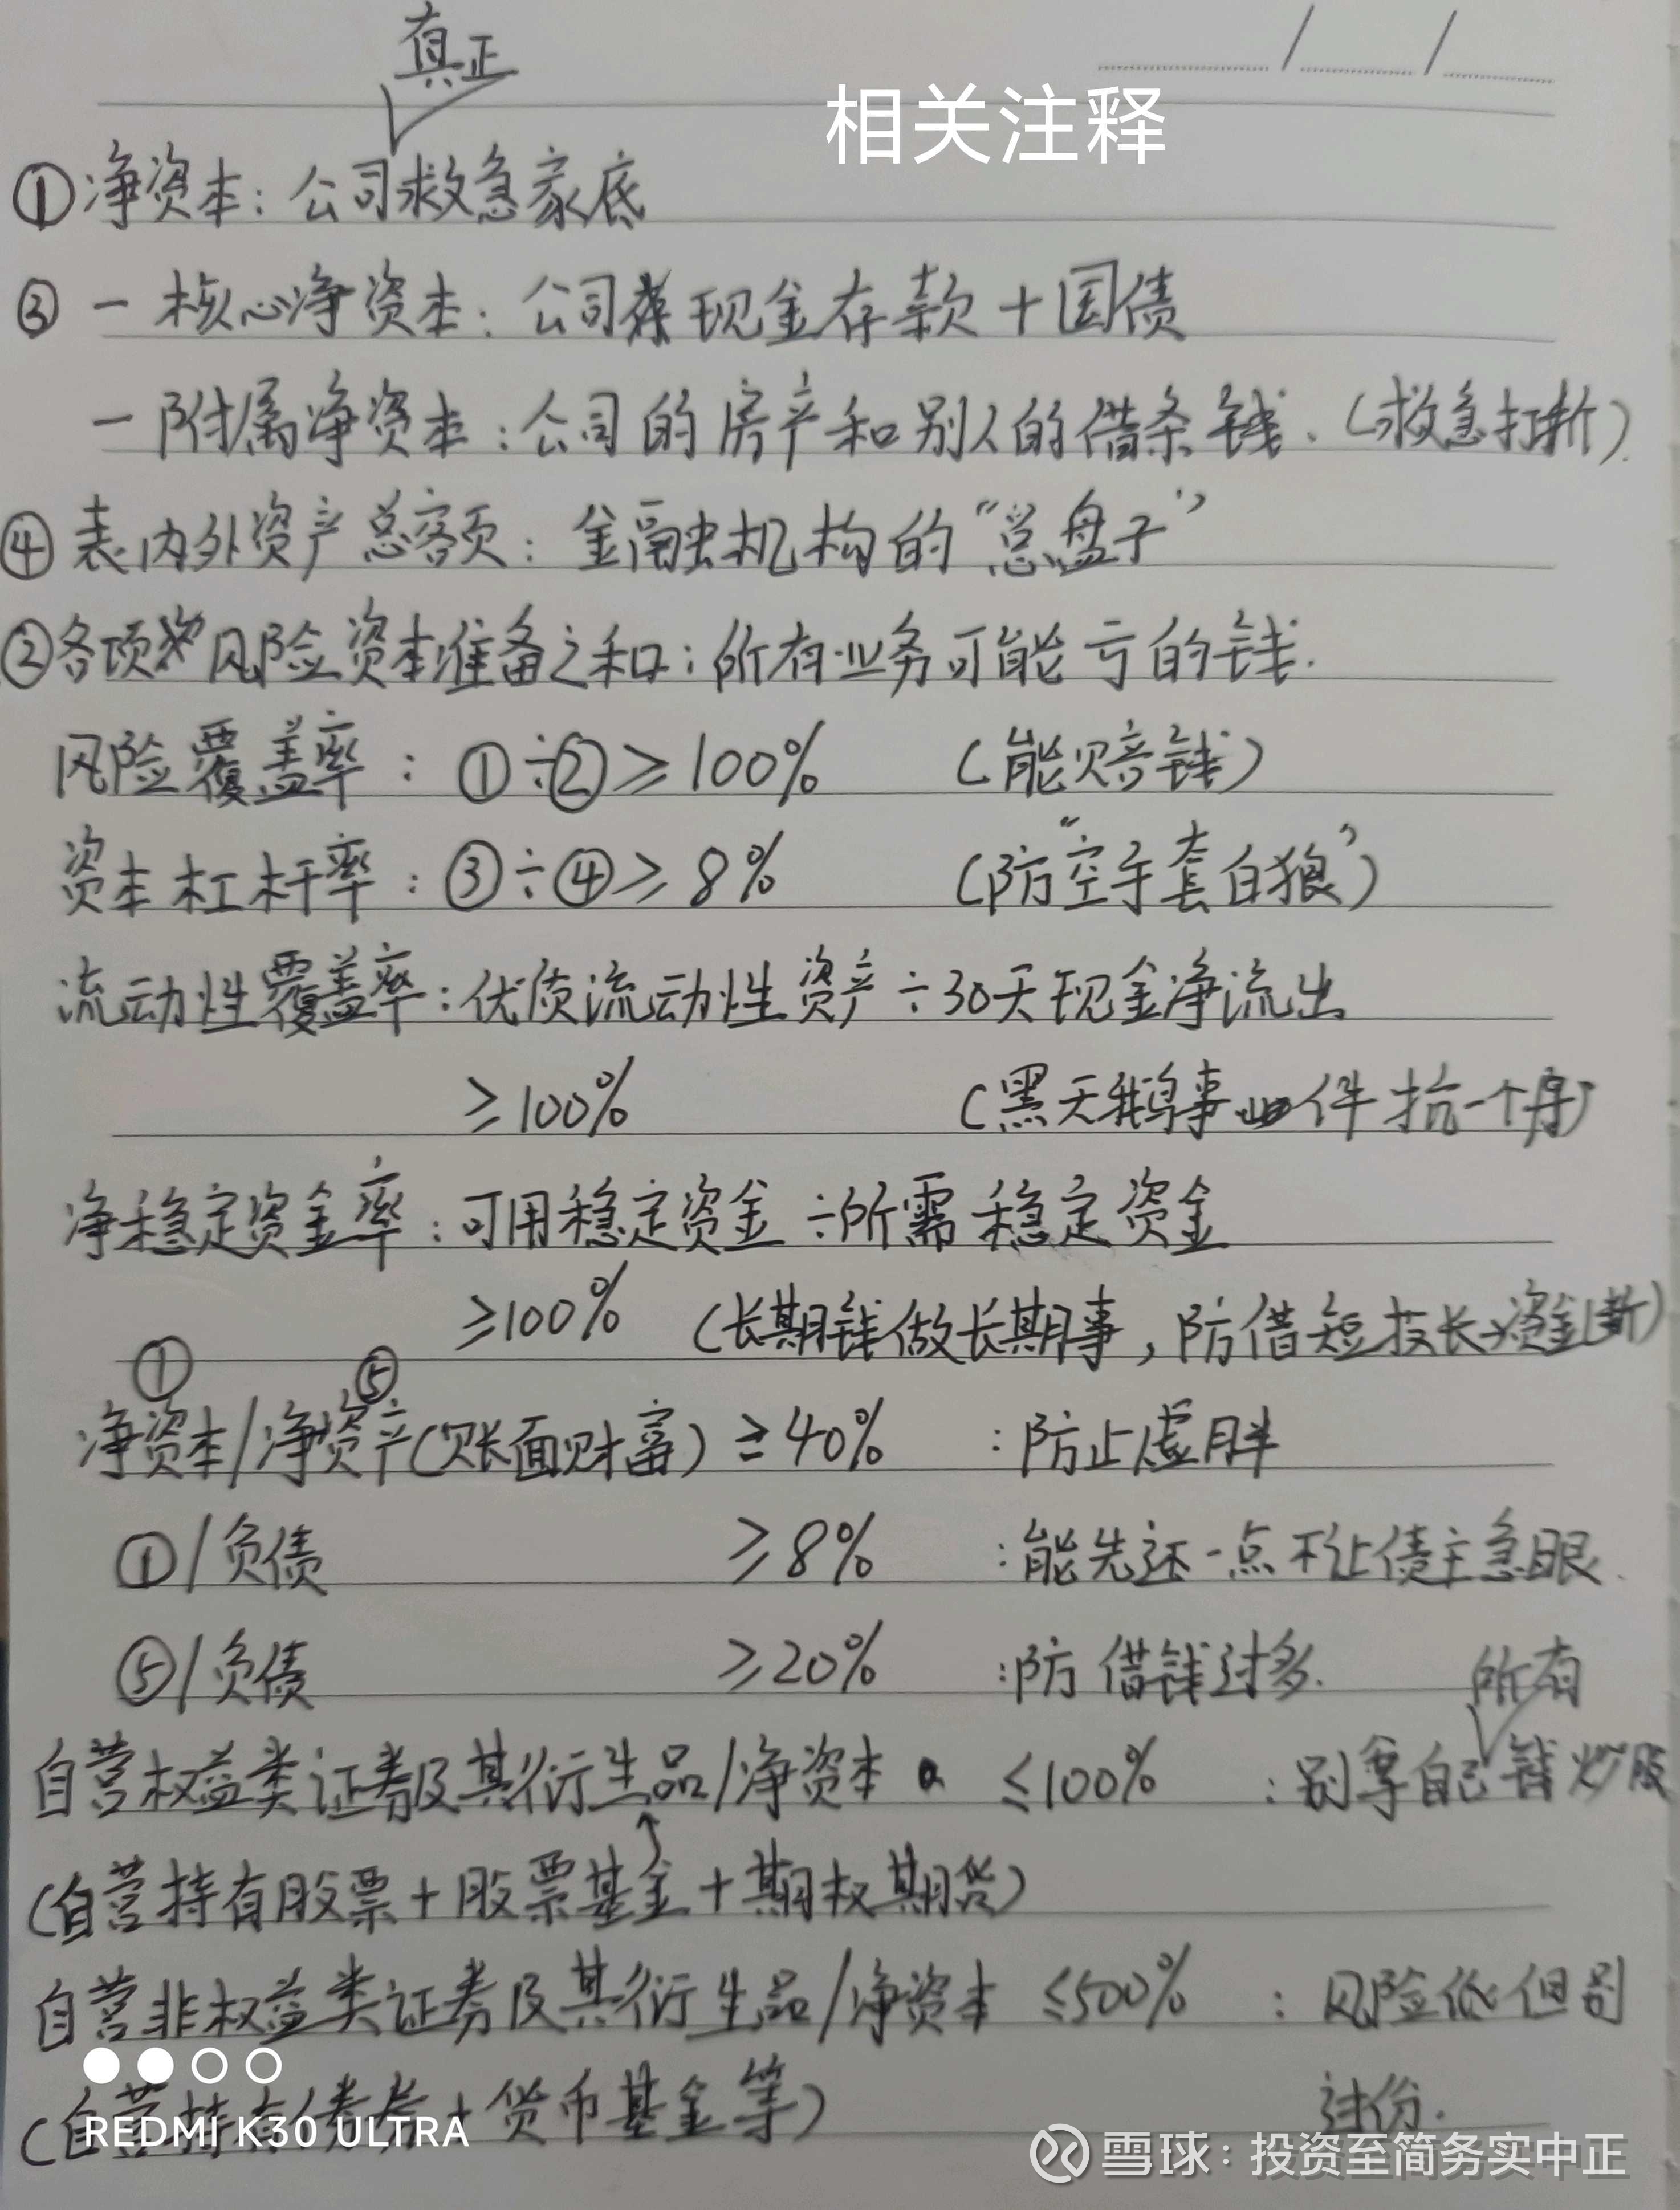 真正
相关注释
①净资本：公司救急家底
③－核心净资本：公司 现金存款＋国债
－附属净资本：公司的房产和别人的借条钱．（救急打折）．
④表内外资产总额：金融机构的“总盘子”
②各项 风险资本准备之和：所有业务可能亏的钱．
风险覆盖率：①÷②≥100% （能赔钱）
资本杠杆率：③÷④≥8% （防“空手套白狼”）
流动性覆盖率：优质流动性资产÷30天现金净流出
≥100% （黑天鹅事件抗一个月）
净稳定资金率：可用稳定资金÷所需稳定资金
≥100% （长期钱做长期事，防借短投长 资金断）
① ⑤
净资本/净资产（账面财富）≥40% ：防止虚胖
①/负债 ≥8% ：能先还一点不让债主急眼．
⑤/负债 ≥20% ：防借钱过多．
所有
自营权益类证券及其衍生品/净资本 ≤100% ：别拿自己钱炒股
（自营持有股票＋股票基金＋期权期货）
自营非权益类证券及其衍生品/净资本 ≤500% ：风险低但别
过份．
（自营持有债券＋货币基金等）
REDMI K30 ULTRA
雪球：投资至简务实中正